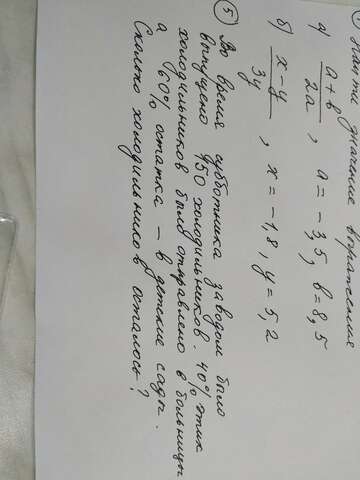 Найти значение выражения
а) a+b/2a, a=-3,5, b=8,5
б) x-y/3y, x=-1,8, y=5,2
⑤ Во время субботника заводом было
выпущено 150 холодильников. 40% этих
холодильников было отправлено в больницы
а 60% остатка – в детские сады.
Сколько холодильников осталось?